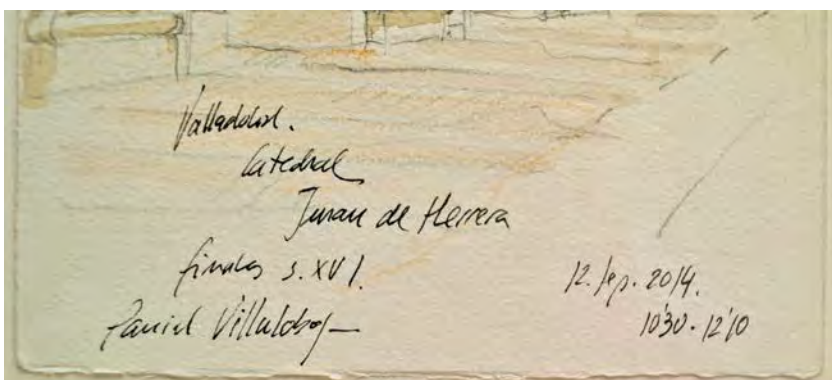 Valladolid.
Catedral
Juan de Herrera
finales s. XVI.
Daniel Villalobos
12. sep. 2014.
10'30 - 12'10